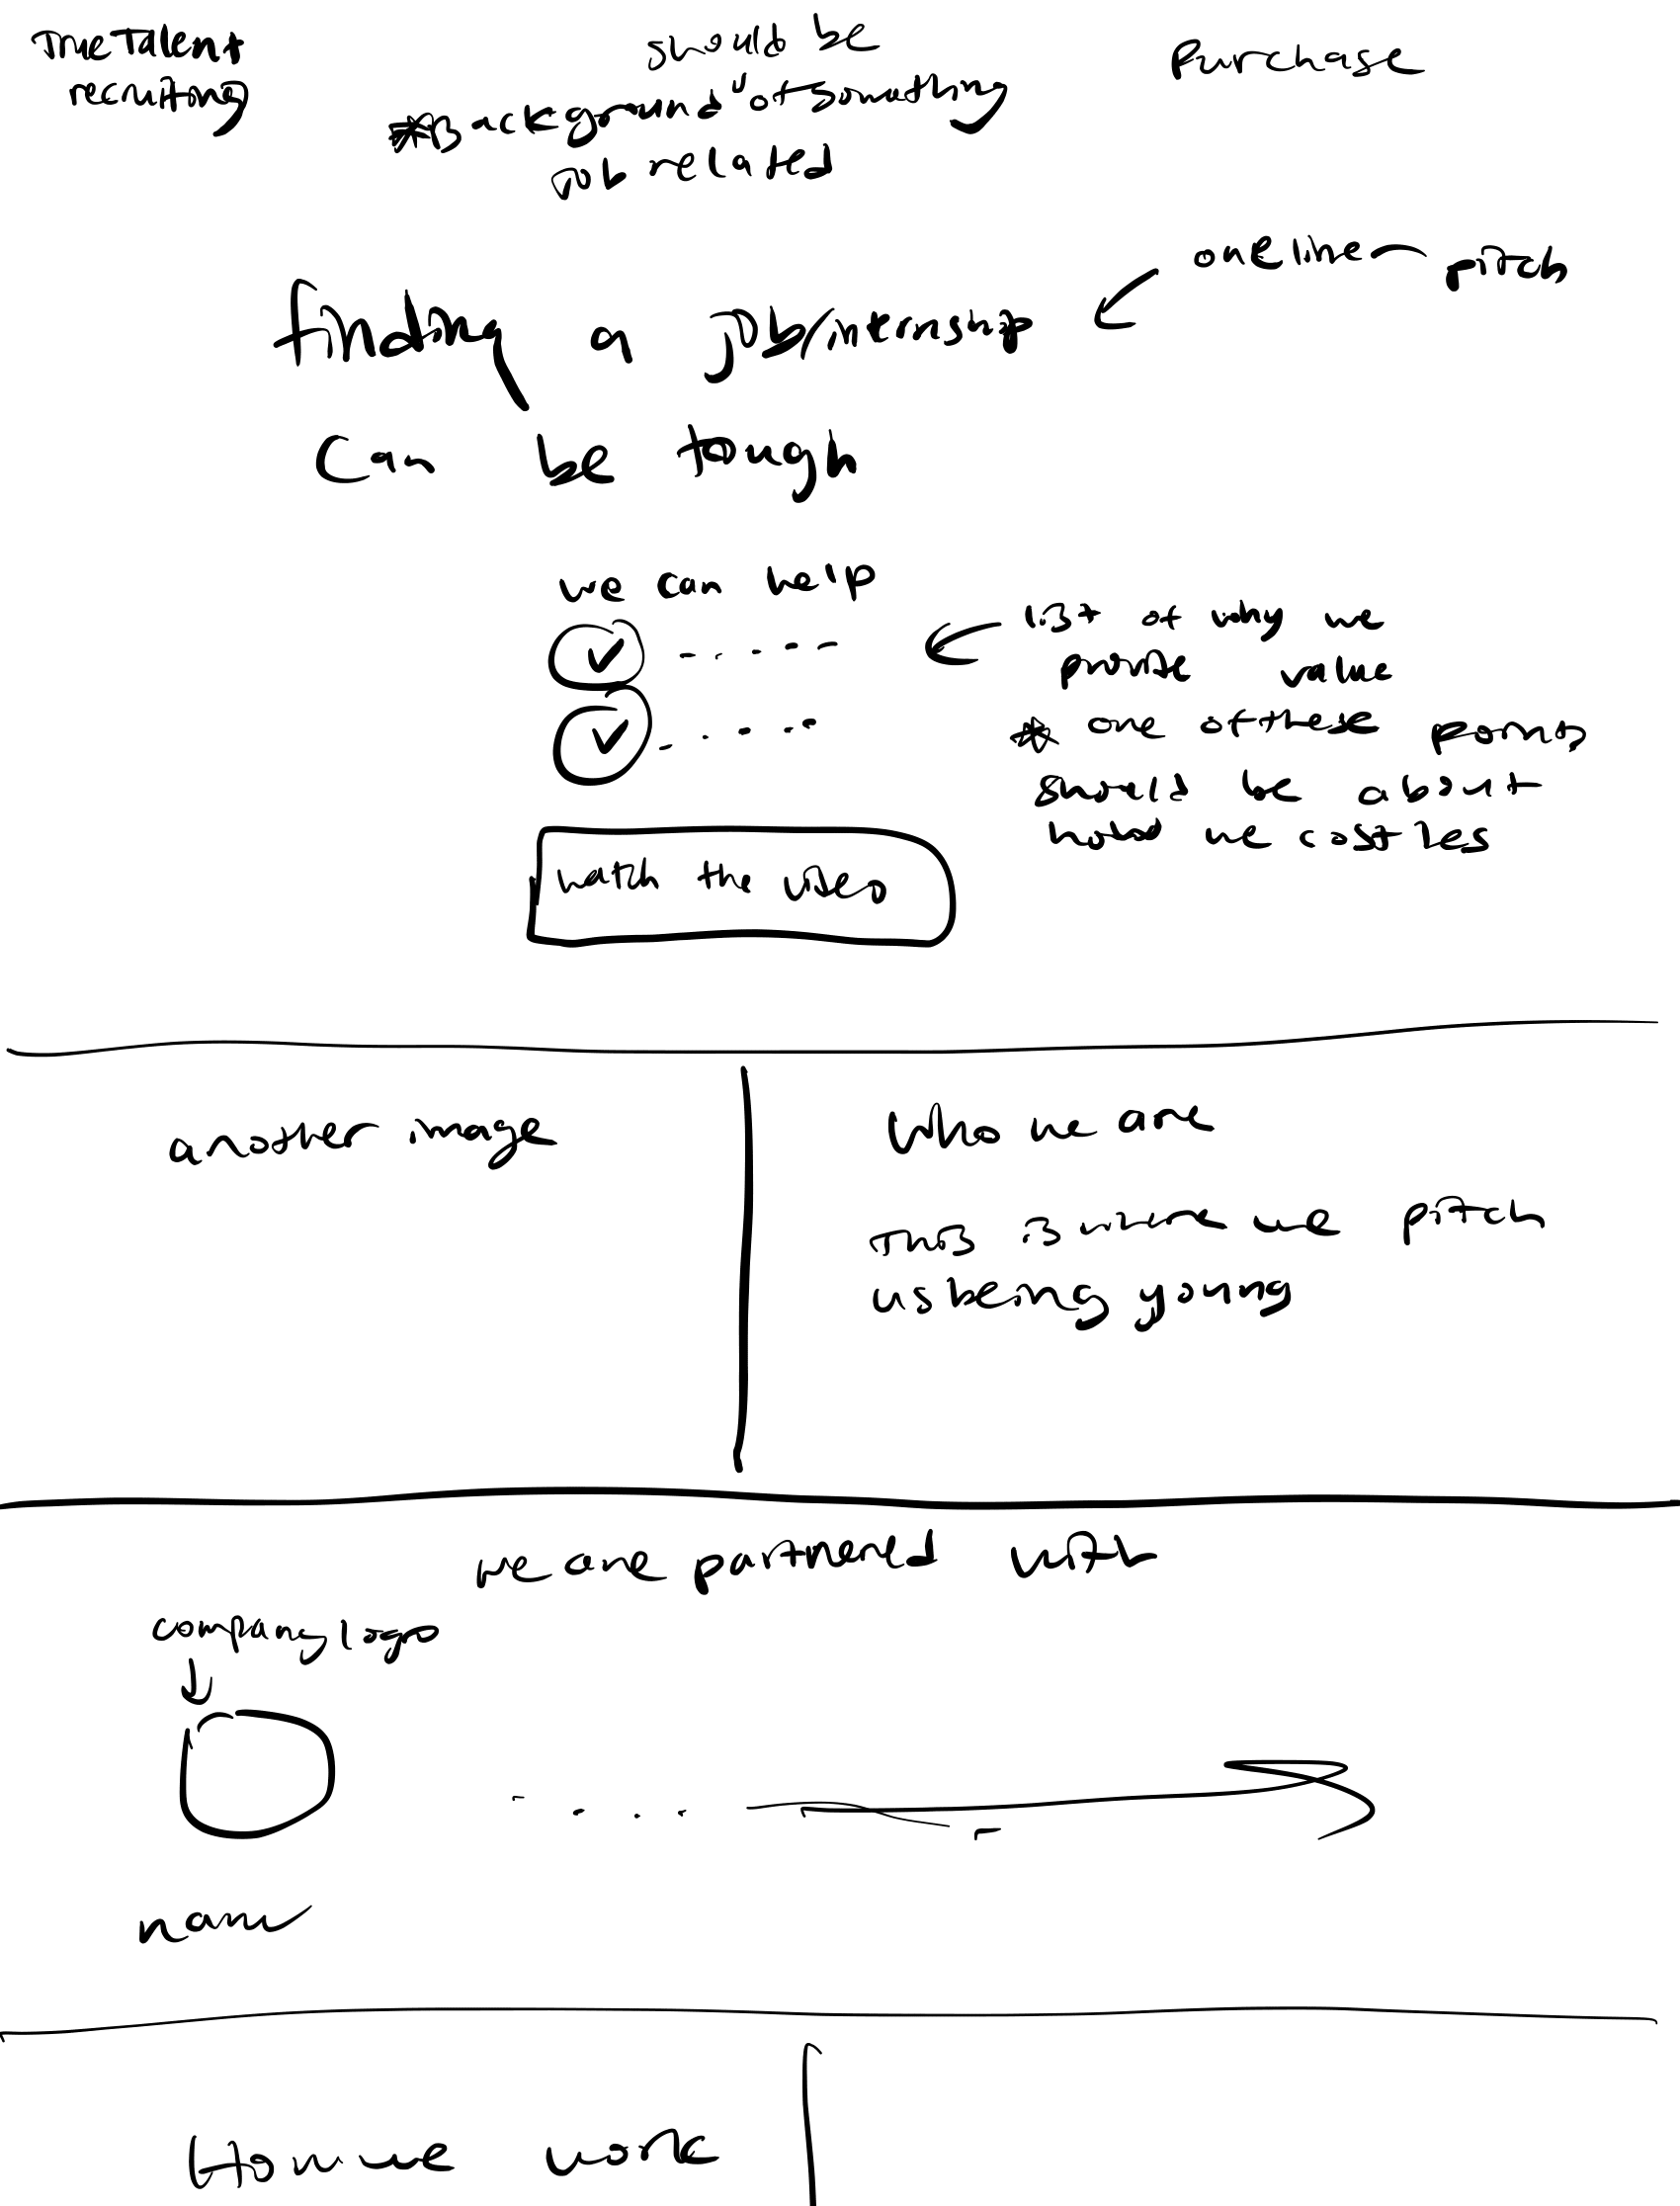 True Talent
recruiting
should be
*Background of something
Job related
Purchase
one line pitch
finding a job/internship
Can be tough
we can help
list of why we
provide value
* one of these points
should be about
how we cost les
watch the video
another image
Who we are
This is where we pitch
us being young
we are partnered with
company logo
name
How we work